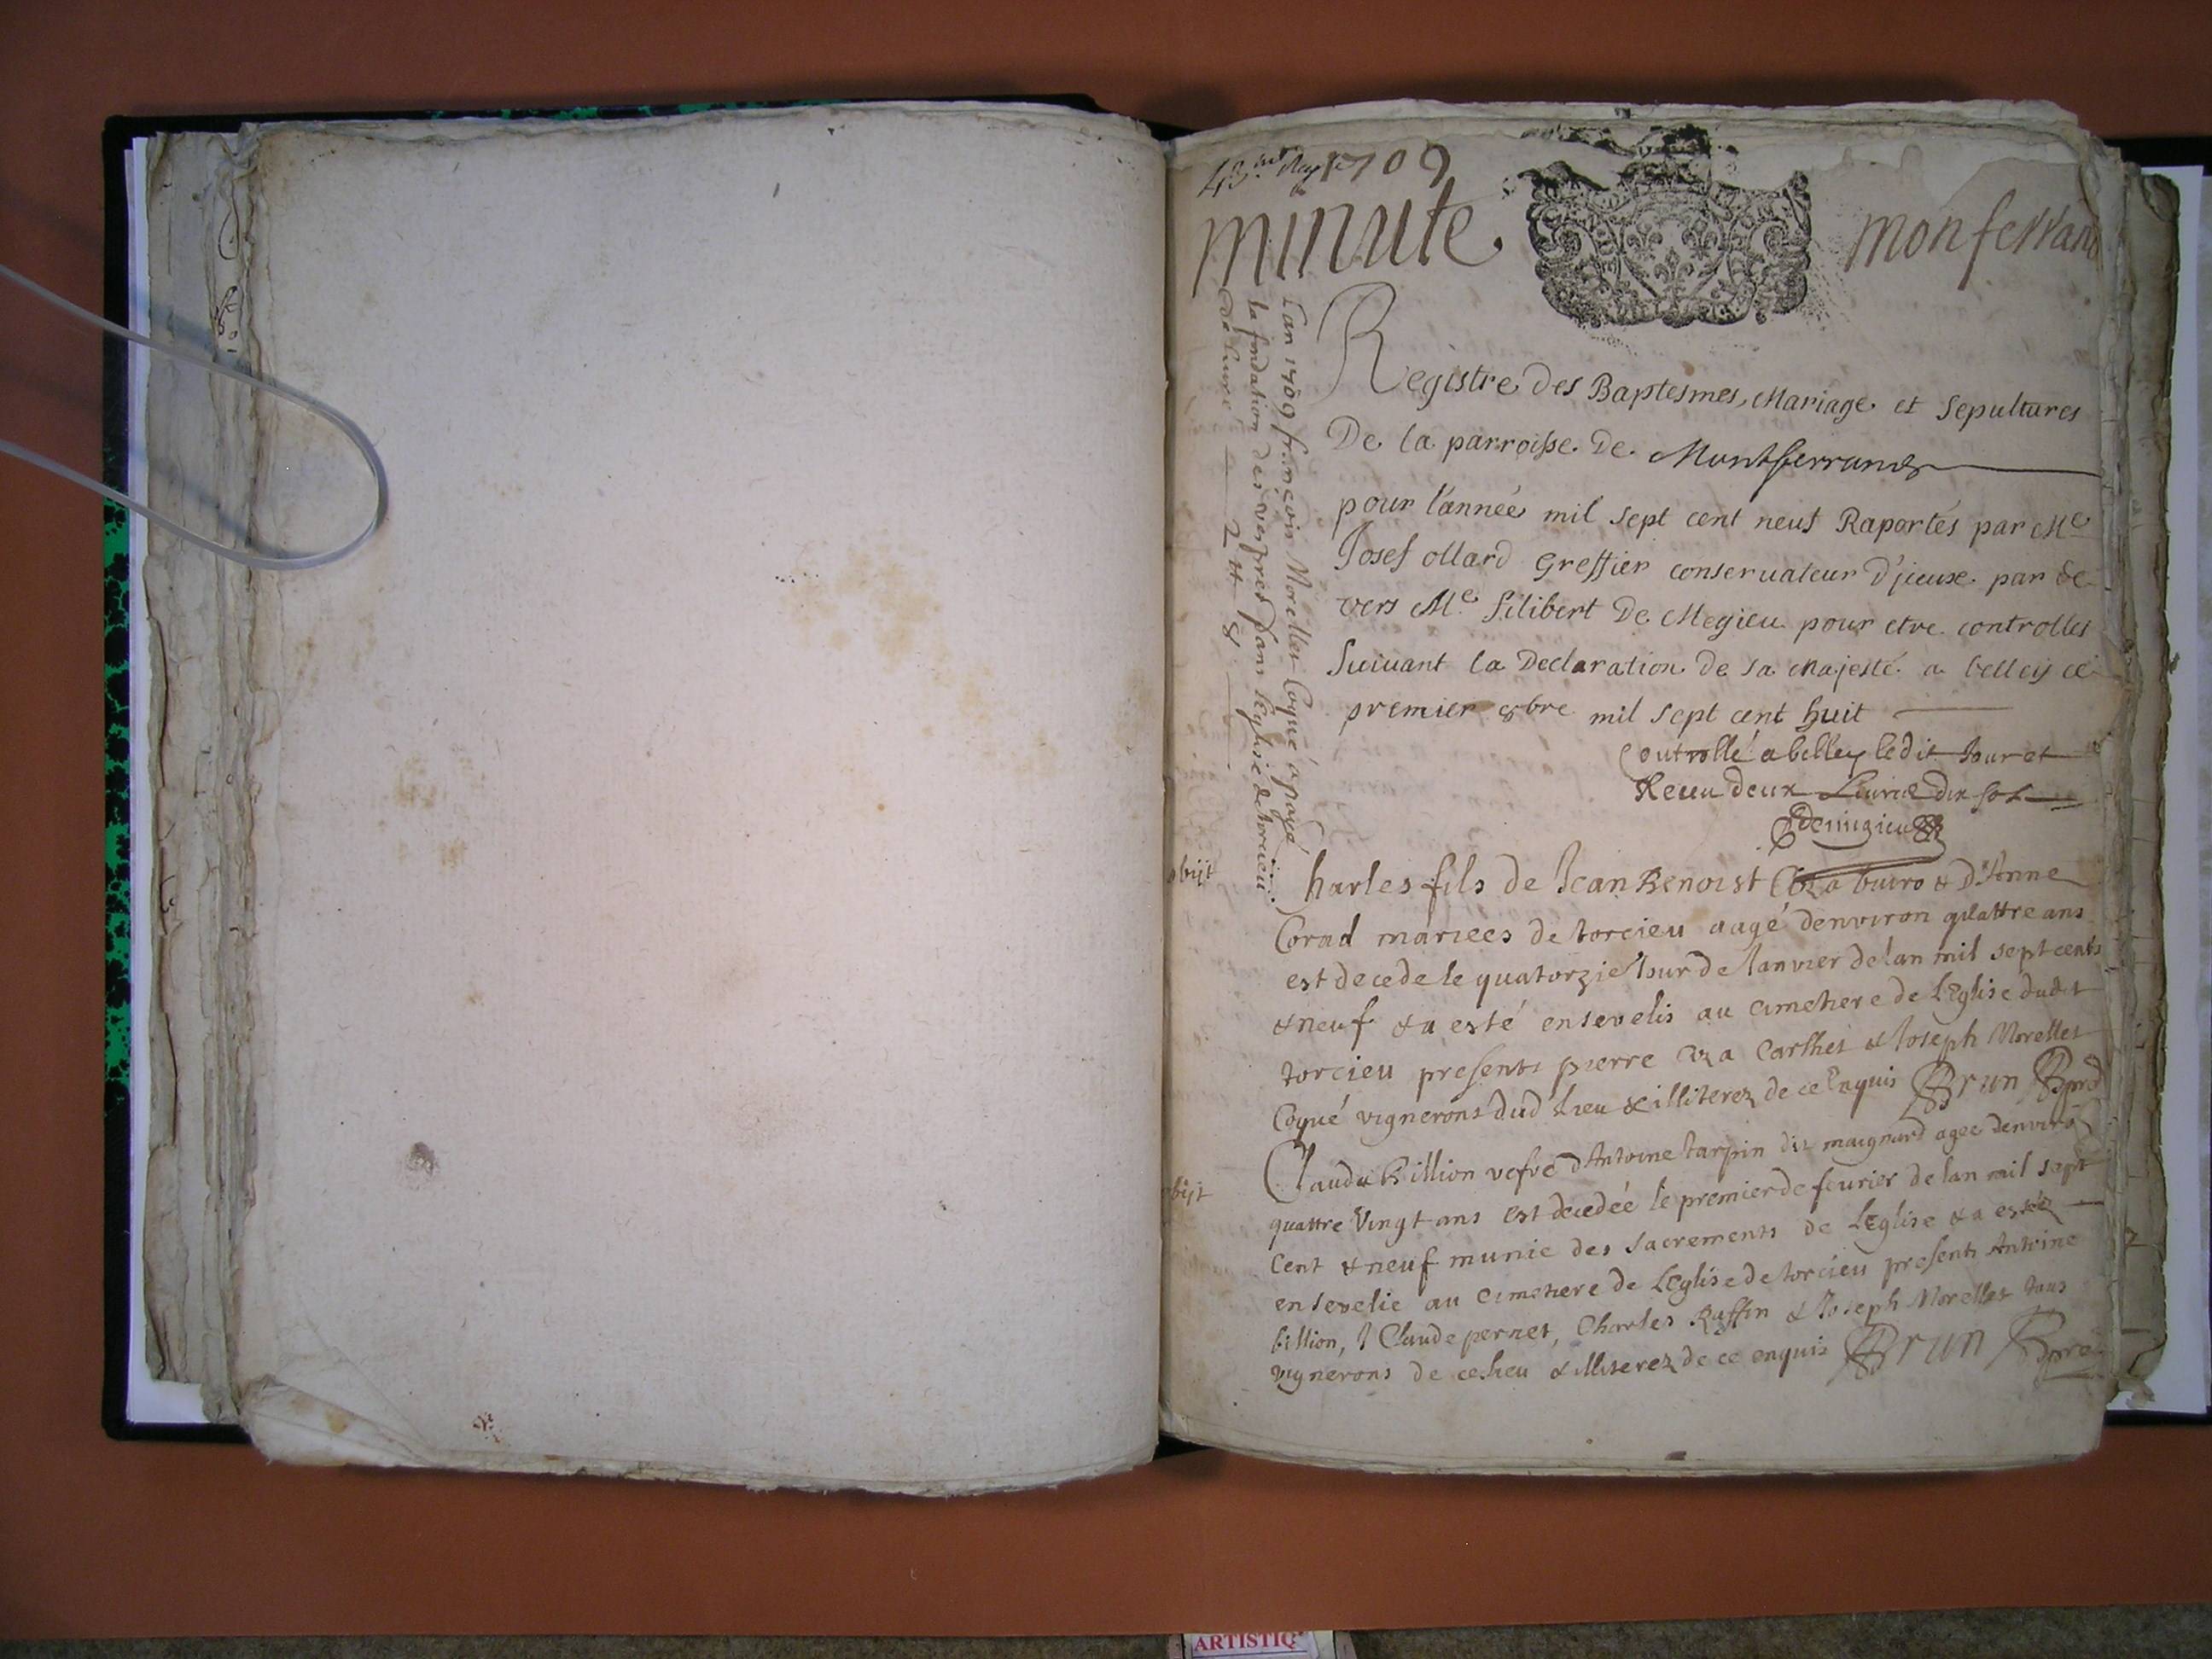 1709
minute
monferrand
Registre des Baptesmes, Mariage et Sepultures
De la parroisse De Montferrand
pour l'année mil sept cent neuf Raportés par Me
Josef ollard Greffier conservateur D'iceux par de
vers Me filibert De Megieu pour etre controlles
suivant la Declaration de sa Majesté a belleij ce
premier 8bre mil sept cent huit
Controllé a belley ledit Jour et
Receu deux Livres dix sol
Demigieu
L'an 1709 francois Morellet Coqué a payé
la fondation des vespres dans l'eglise de torcieu
obijt
Charles fils de Jean Benoist & D'Anne
Corad mariees de torcieu aagé denviron quattre ans
est decede le quatorzie Jour de Janvier de lan mil sept cents
& neuf & a esté ensevelis au cimetiere de L'Eglise dudit
torcieu presents pierre & Joseph Morellet
Coqué vignerons dud Lieu & illiterez de ce Enquis Brun
obijt
Clauda Billion vefve d'Antoine tarpin dit maignard agee denviro
quattre Vingt ans est decedée le premier de feurier de lan mil sept
Cent & neuf munie des sacrements de L'Eglise & a estéz
ensevelie au cimetiere de L'Eglise de torcieu presents Antoine
billion, Claude pernet, Charles Ruffin & Joseph Morellet tous
vignerons de ce lieu & illiterez de ce enquis Brun
ARTISTIQ